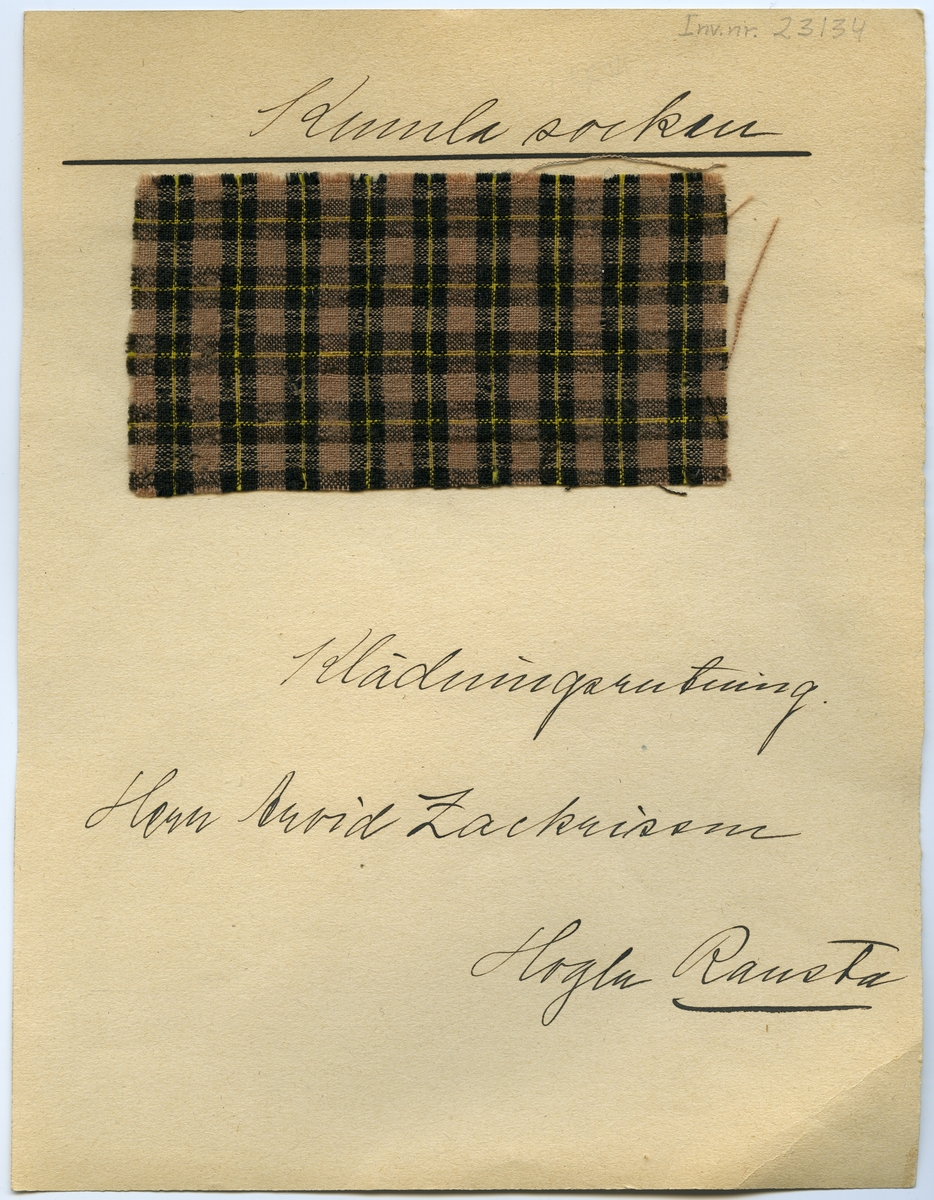 Inv.nr. 23134
Kumla socken
Klädningsrutning.
Herr Arvid Zackrisson
Hogla Ransta